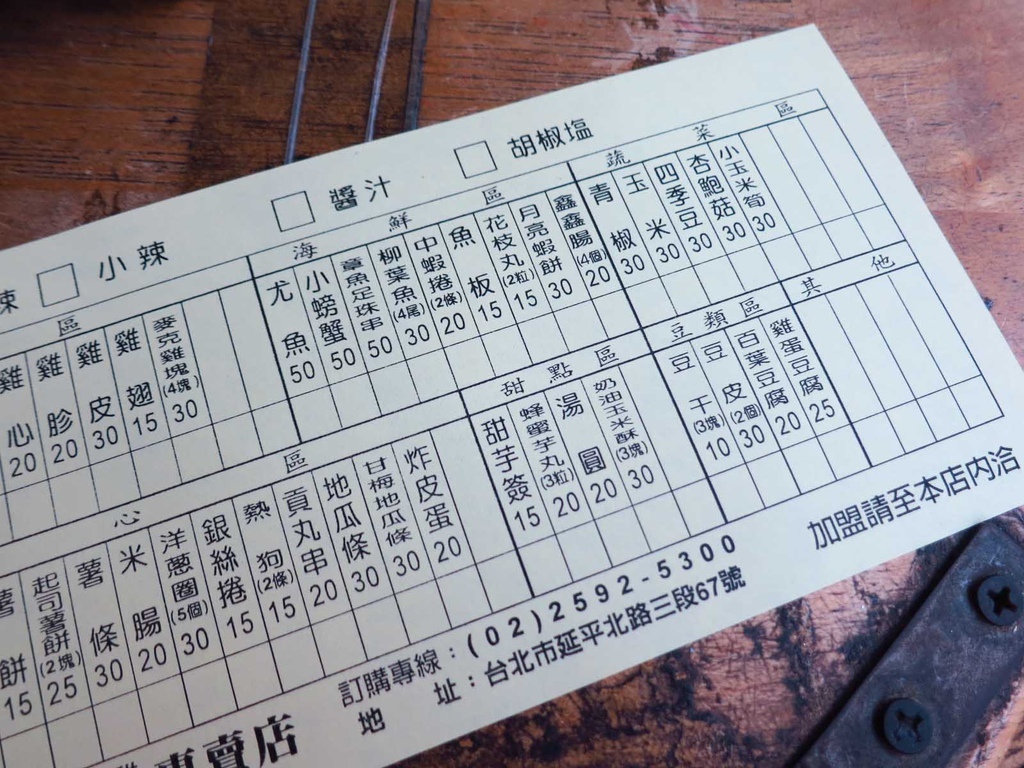 辣 □ 小辣 □ 醬汁 □ 胡椒塩
區
雞心 20
雞胗 20
雞皮 30
雞翅 15
麥克雞塊(4塊) 30
海鮮區
尤魚 50
小螃蟹 50
章魚足珠串 50
柳葉魚(4尾) 30
中蝦捲(2條) 20
魚板 15
花枝丸(2粒) 15
月亮蝦餅 30
鑫鑫腸(4個) 20
蔬菜區
青椒 30
玉米 30
四季豆 30
杏鮑菇 30
小玉米筍 30
心區
薯餅 15
起司薯餅(2塊) 25
薯條 30
米腸 20
洋蔥圈(5個) 30
銀絲捲 15
熱狗(2條) 15
貢丸串 20
地瓜條 30
甘梅地瓜條 30
炸皮蛋 20
甜點區
甜芋簽 15
蜂蜜芋丸(3粒) 20
湯圓 20
奶油玉米酥(3塊) 30
豆類區
豆干(3塊) 10
豆皮(2個) 30
百葉豆腐 20
雞蛋豆腐 25
其他
專賣店
訂購專線：(02)2592-5300
地址：台北市延平北路三段67號
加盟請至本店內洽